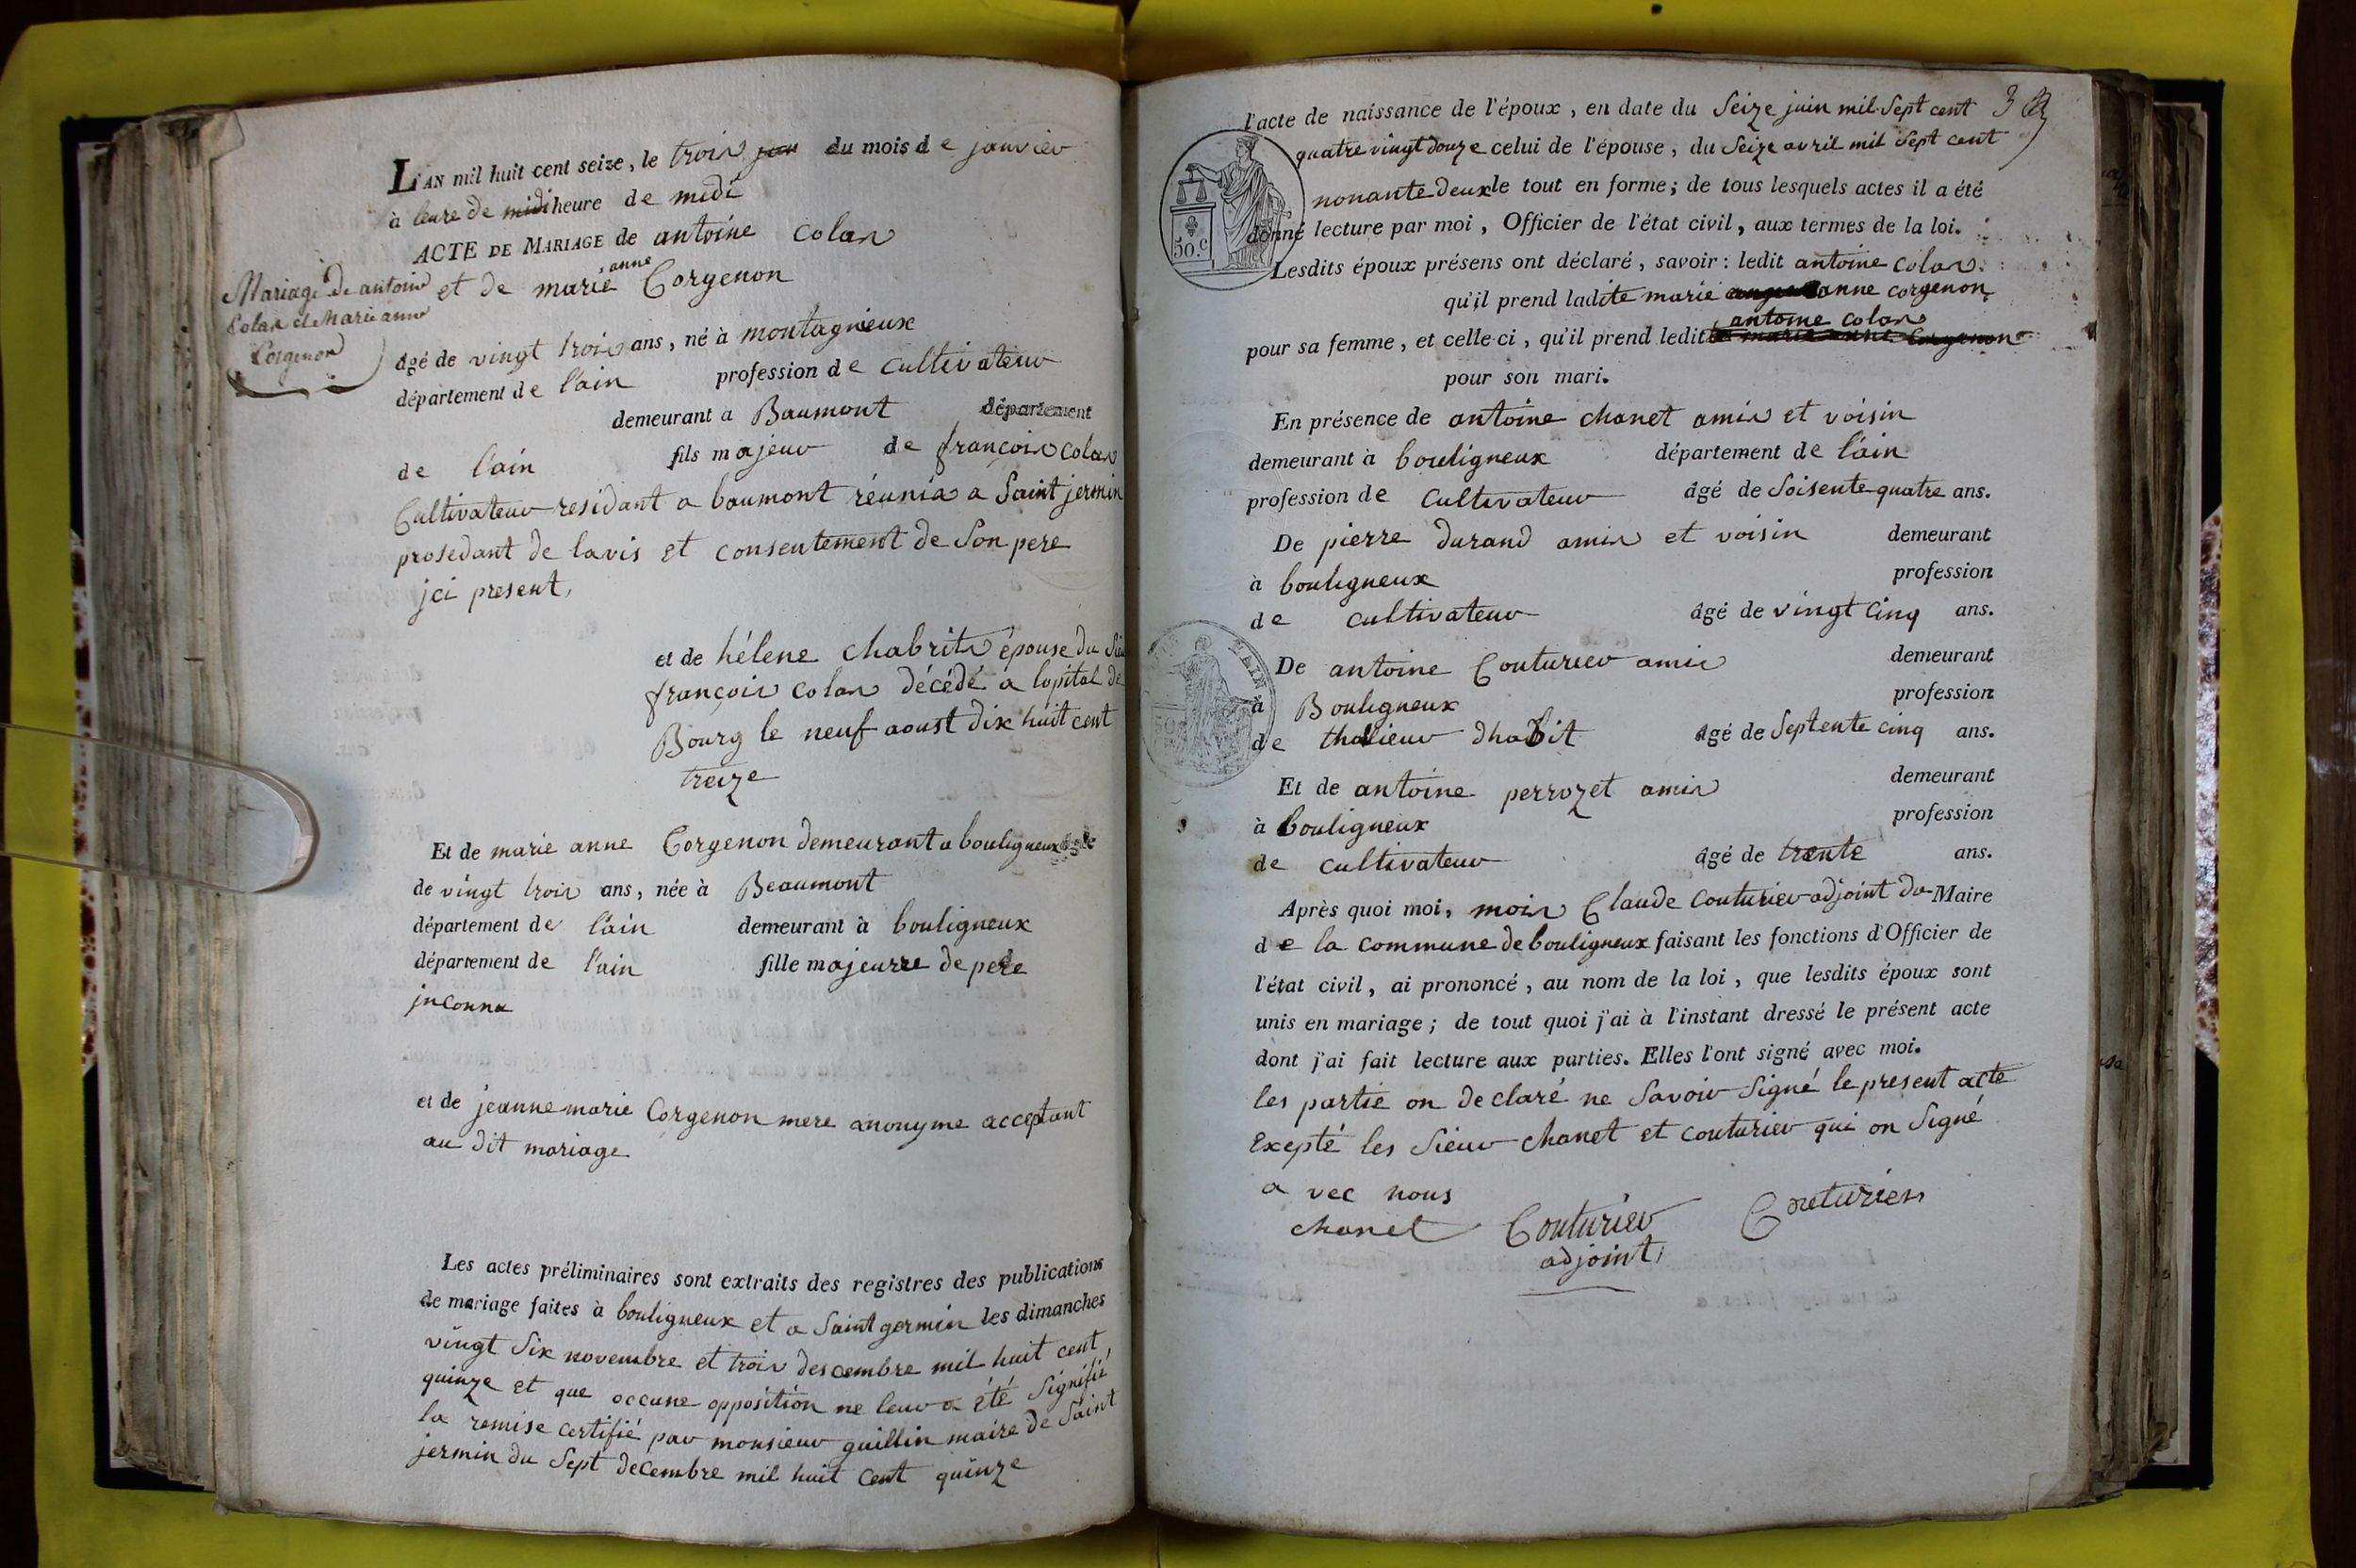 L'AN mil huit cent seize, le trois jour du mois de janvier
à leure de midi heure de midi
ACTE DE MARIAGE de antoine Colas
et de marie anne Corgenon
Mariage de antoine
Colas et Marie anne
Corgenon
âgé de vingt trois ans, né à montagnieux
département de l'ain profession de Cultivateur
demeurant a Baumont département
de l'ain fils majeur de françois Colas
Cultivateur residant a baumont réunis a Saint jermin
prosedant de lavis et consentement de Son pere
jci present,
et de hélene Chabrits épouse du Sieu
françois Colas décédé a lopital de
Bourg le neuf aoust dix huit cent
treize
Et de marie anne Corgenon demeurant a bouligneux âgée
de vingt trois ans, née à Beaumont
département de l'ain demeurant à bouligneux
département de l'ain fille majeurre de pere
jnconnu
et de jeanne marie Corgenon mere anonyme acceptant
au dit mariage
Les actes préliminaires sont extraits des registres des publications
de mariage faites à bouligneux et a Saint germin les dimanches
vingt Six novembre et trois descembre mil huit cent
quinze et que occune opposition ne leur a été Signifié,
la remise certifié par monsieur guillin maire de Saint
jermin du Sept decembre mil huit Cent quinze
l'acte de naissance de l'époux, en date du Seize juin mil Sept cent 3
quatre vingt douze celui de l'épouse, du Seize avril mil Sept cent
nonante deux le tout en forme; de tous lesquels actes il a été
donné lecture par moi, Officier de l'état civil, aux termes de la loi.
50.c
Lesdits époux présens ont déclaré, savoir: ledit antoine Colas
qu'il prend ladite marie anne Corgenon
antoine Colas
pour sa femme, et celle-ci, qu'il prend ledit marie anne Corgenon
pour son mari.
En présence de antoine chanet amis et voisin
demeurant à bouligneux département de l'ain
profession de Cultivateur âgé de Soisente quatre ans.
De pierre durand amis et voisin demeurant
à bouligneux profession
de cultivateur âgé de vingt Cinq ans.
De antoine Couturier amis demeurant
à Bouligneux profession
de thalieur dhabit âgé de Septente cinq ans.
Et de antoine perrozet amis demeurant
à bouligneux profession
de cultivateur âgé de trente ans.
Après quoi moi, mois Claude Couturier adjoint du Maire
de la Commune de bouligneux faisant les fonctions d'Officier de
l'état civil, ai prononcé, au nom de la loi, que lesdits époux sont
unis en mariage; de tout quoi j'ai à l'instant dressé le présent acte
dont j'ai fait lecture aux parties. Elles l'ont signé avec moi.
les partie on declaré ne Savoir Signé le present acte
Exepté les Sieur chanet et couturier qui on Signé
a vec nous
chanet Couturier Couturier
adjoint,